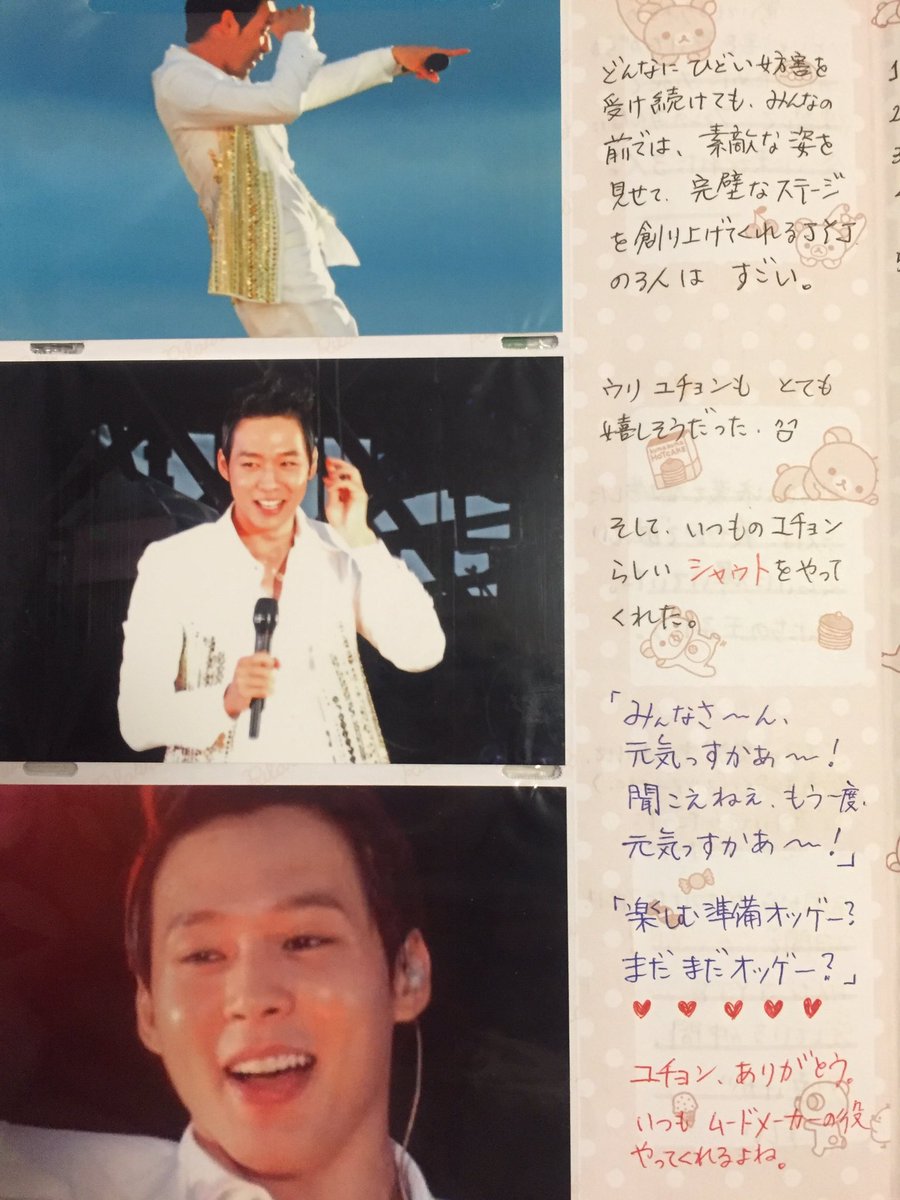 どんなに ひどい妨害を
受け続けても、みんなの
前では、素敵な姿を
見せて、完璧なステージ
を創り上げてくれるJYJ
の3人は すごい。
ウリ ユチョンも とても
嬉しそうだった。
そして、いつものユチョン
らしい シャウトをやって
くれた。
「みんなさ〜ん、
元気っすかあ〜！
聞こえねえ、もう一度、
元気っすかあ〜！」
「楽しむ準備オッゲー？
まだまだオッゲー？」
♥ ♥ ♥ ♥ ♥
ユチョン、ありがとう。
いつも ムードメーカーの役
やってくれるよね。
HOTCAKE